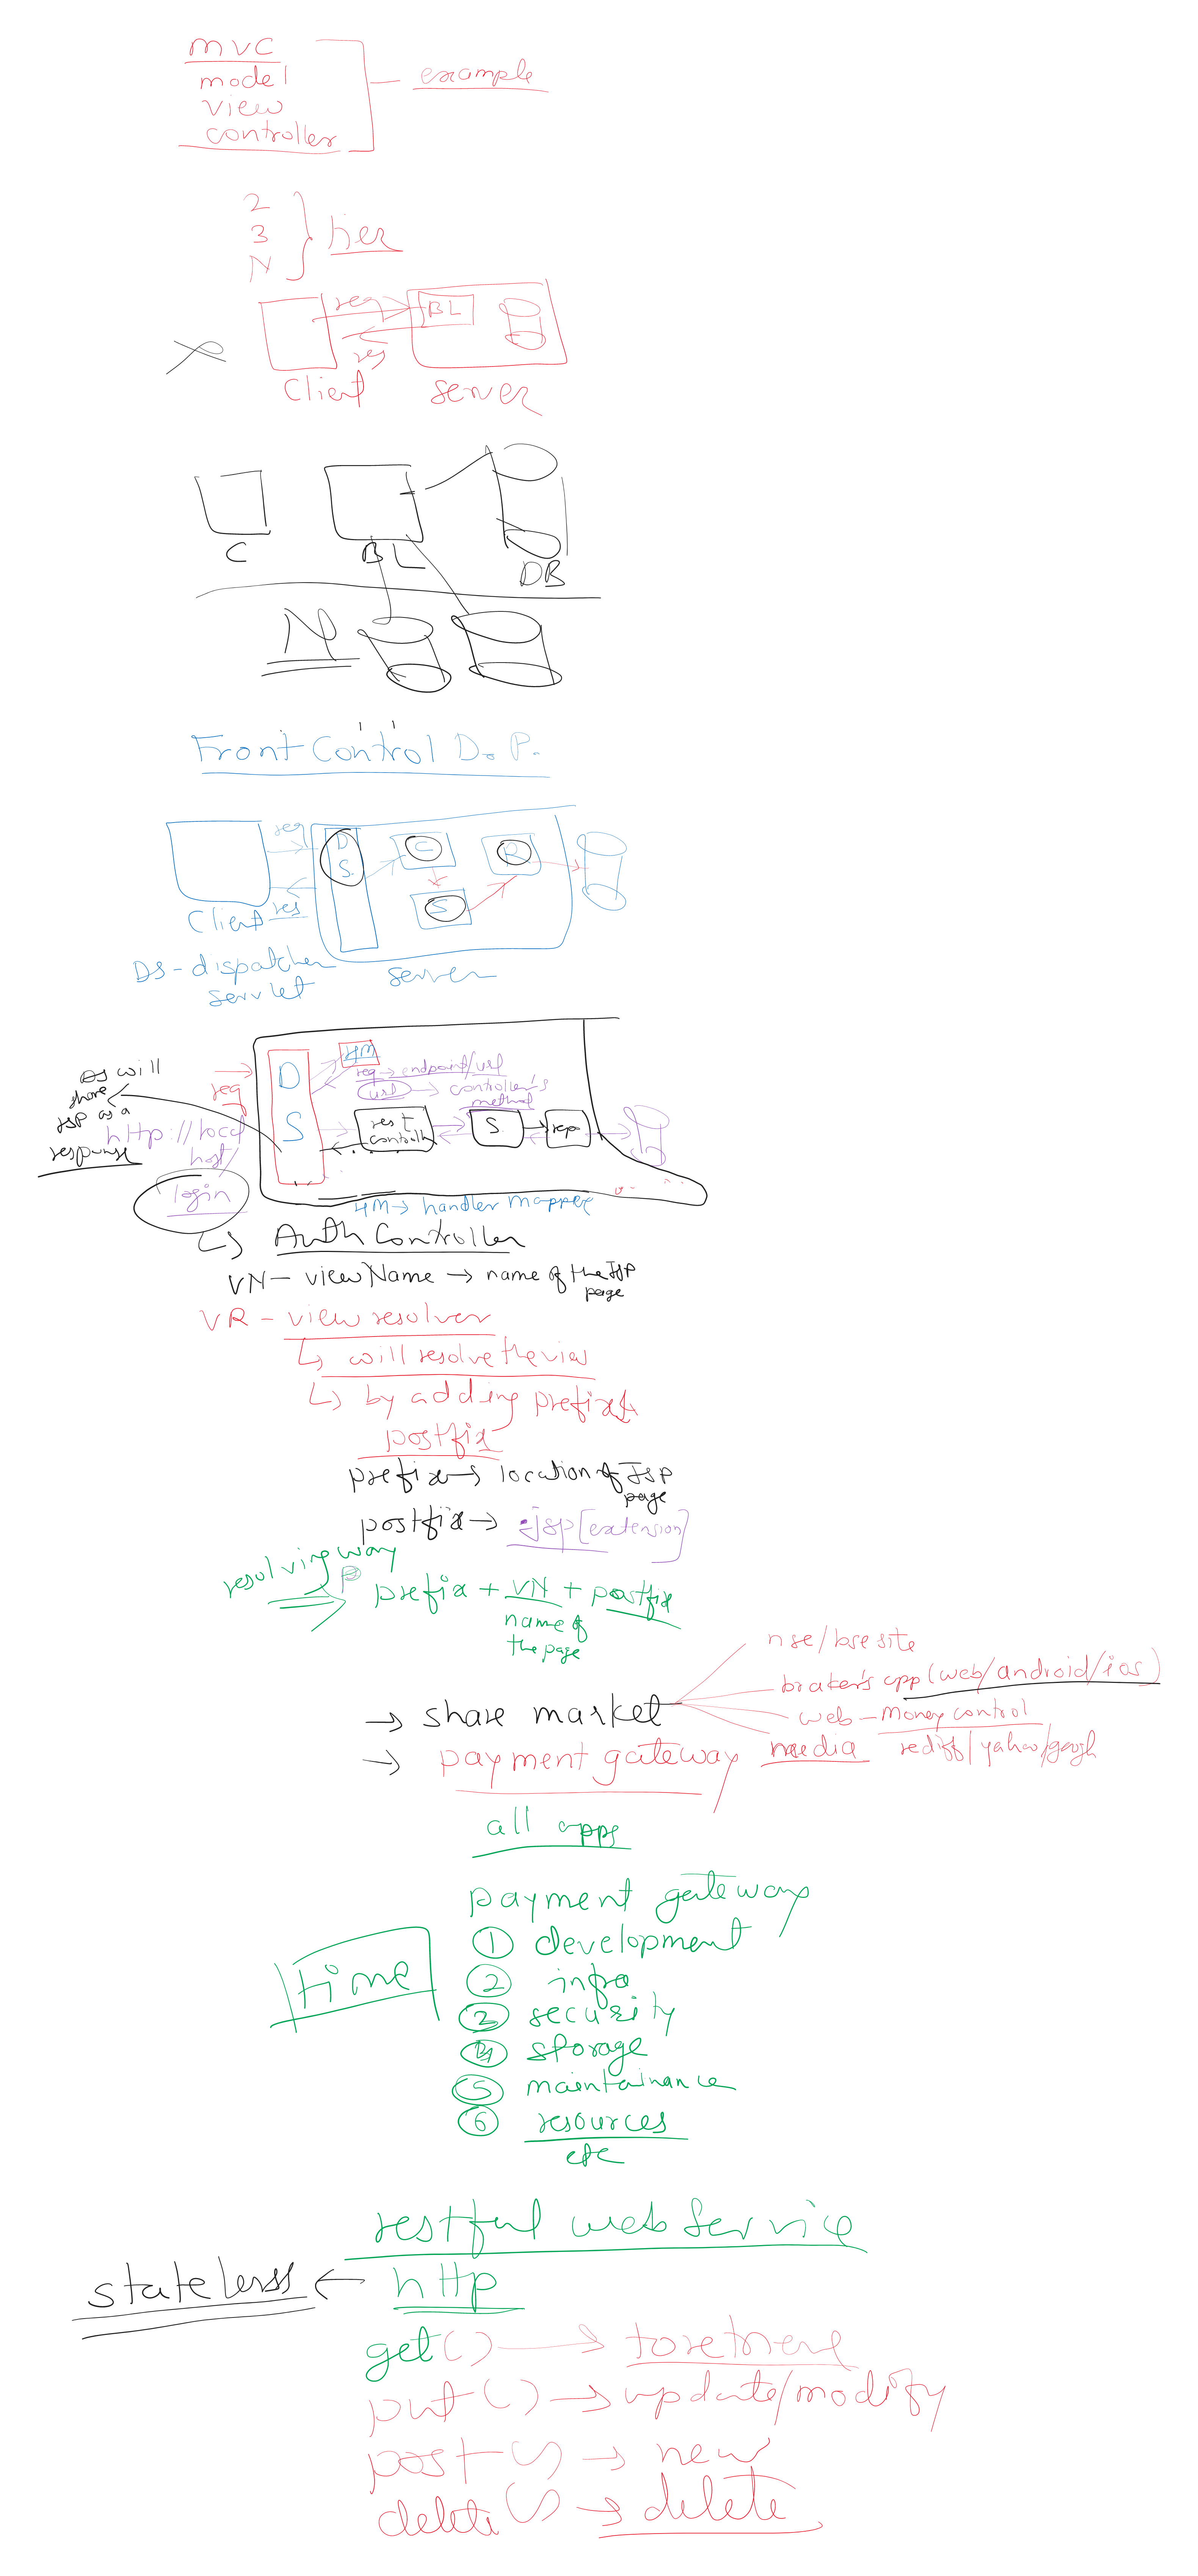 mvc
model
view
controller
example
2
3
N
tier
req
BL
res
Client
server
C
BL
DB
N
Front Control D. P.
req
D
S.
C
R
S
res
Client
server
DS - dispatcher
servlet
DS will
share
JSP as a
response
req
http://local
host/
login
D
S
HM
req → endpoint/url
url → controller's
method
rest
controller
S
rep
HM → handler mapper
↳ AuthController
VN - viewName → name of the JSP
page
VR - view resolver
↳ will resolve the view
↳ by adding prefix &
postfix
prefix → location of JSP
page
postfix → .jsp [extension]
resolving way
prefix + VN + postfix
name of
the page
→ share market
nse/bse site
broker's app (web/android/ios)
web - money control
media rediff/yahoo/googl
→ payment gateway
all apps
payment gateway
time
1 development
2 infra
3 security
4 storage
5 maintainance
6 resources
etc
restful web service
stateless ← http
get() → to retrieve
put() → update/modify
post() → new
delete() → delete